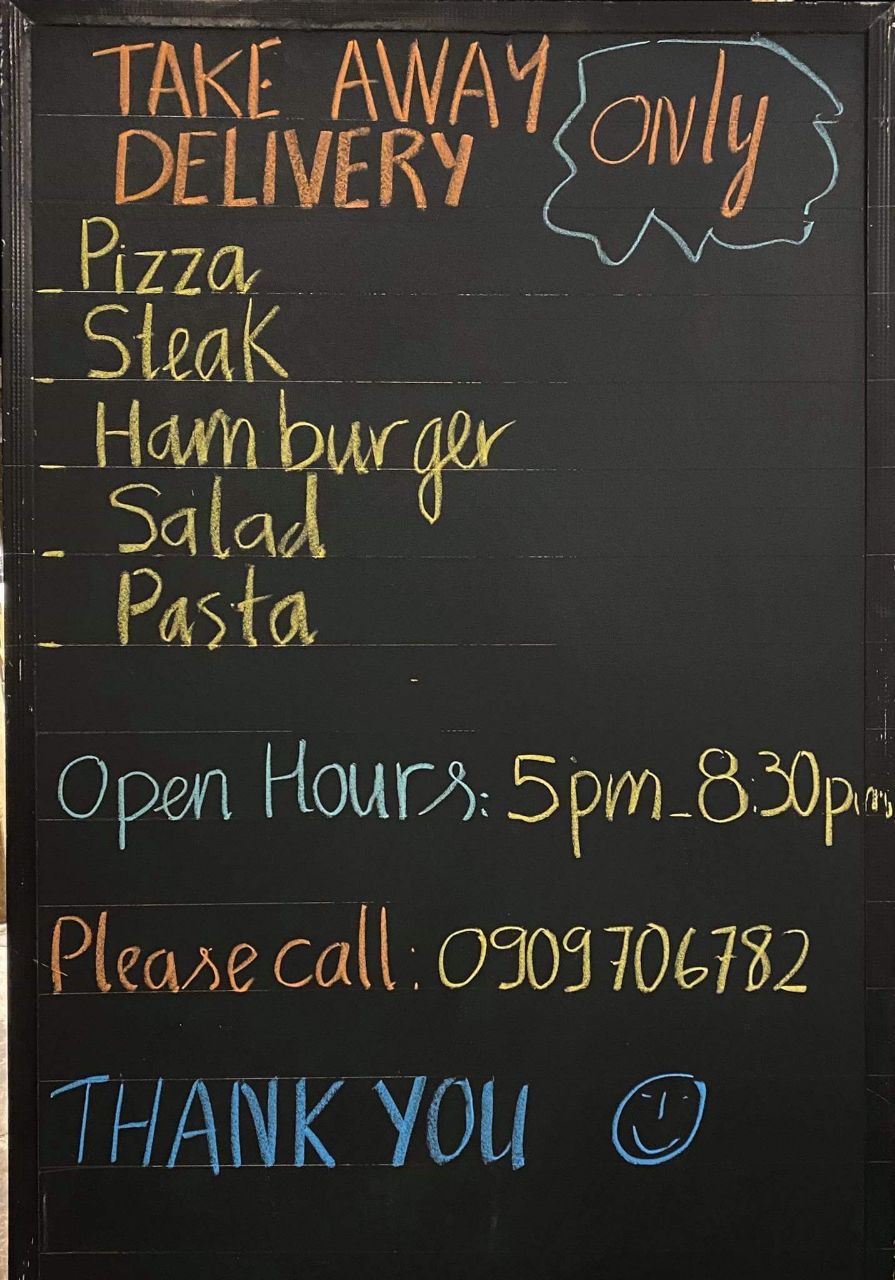 TAKE AWAY
DELIVERY
only
_ Pizza
_ Steak
_ Hamburger
_ Salad
_ Pasta
Open Hours: 5pm_8:30pm
Please call: 0909706782
THANK YOU